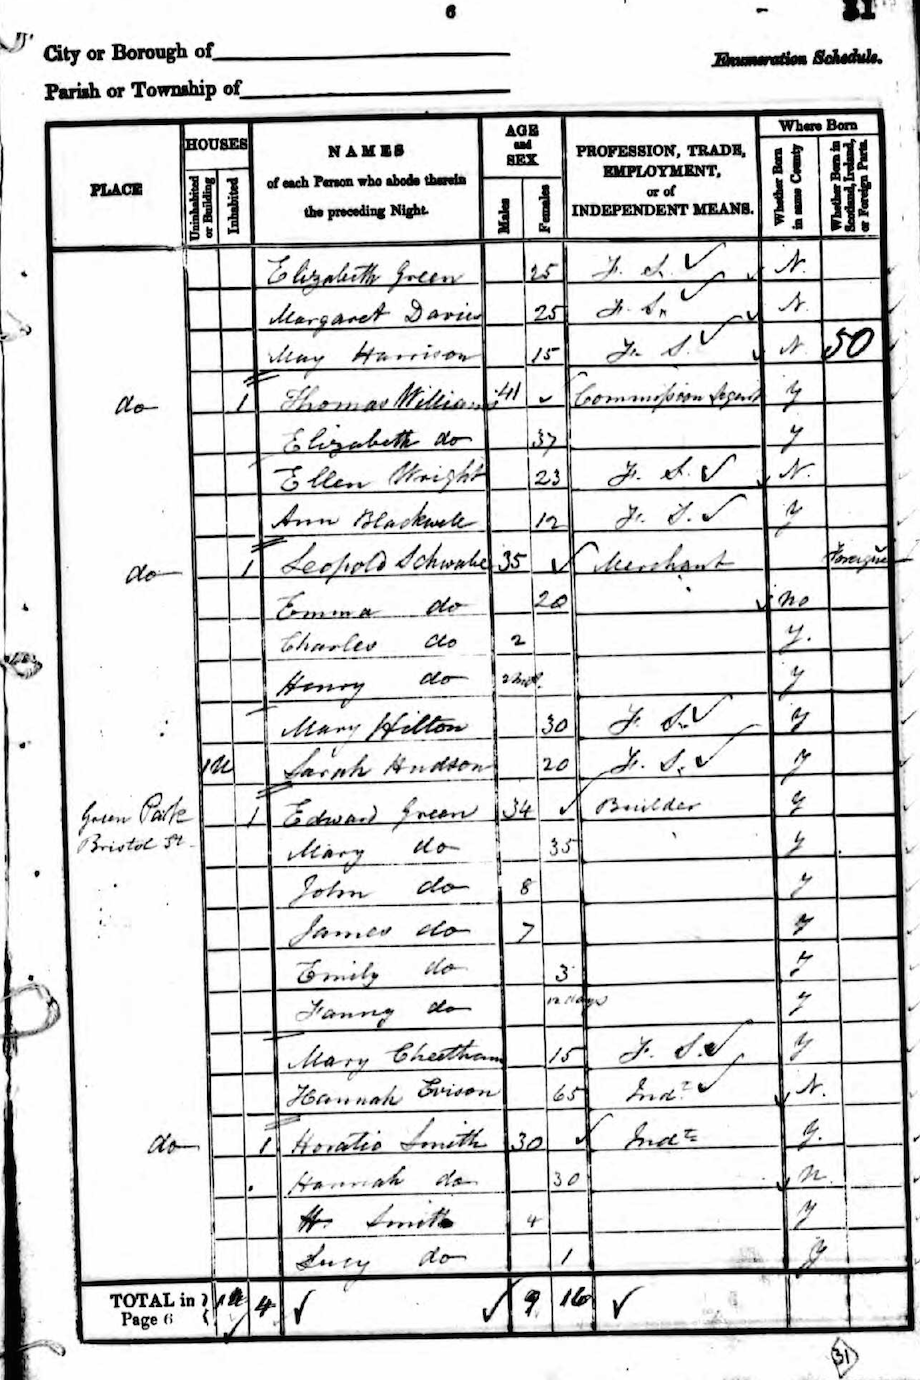 6
31
City or Borough of
Enumeration Schedule.
Parish or Township of
PLACE
HOUSES
Uninhabited or Building
Inhabited
NAMES
of each Person who abode therein
the preceding Night.
AGE
and
SEX
Males
Females
PROFESSION, TRADE,
EMPLOYMENT,
or of
INDEPENDENT MEANS.
Where Born
Whether Born in same County
Whether Born in Scotland, Ireland, or Foreign Parts.
Elizabeth Green 25 F. S. N.
Margaret Davies 25 F. S. N.
May Harrison 15 F. S. N. 50
do 1 Thomas Williams 41 Commission Agent y
Elizabeth do 37 y
Ellen Wright 23 F. S. N.
Ann Blackwell 12 F. S. y
do 1 Leopold Schwabe 35 Merchant Foreign
Emma do 20 no
Charles do 2 y.
Henry do 2 y
Mary Hilton 30 F. S. y
1U Sarah Hudson 20 F. S. y
Green Park 1 Edward Green 34 Builder y
Bristol St. Mary do 35 y
John do 8 y
James do 7 y
Emily do 3 y
Fanny do 12 days y
Mary Cheetham 15 F. S. y
Hannah Evison 65 Ind. N.
do 1 Horatio Smith 30 Ind. y.
Hannah do 30 n.
H. Smith 4 y
Lucy do 1 y
TOTAL in 1U 4 9 16
Page 6
31